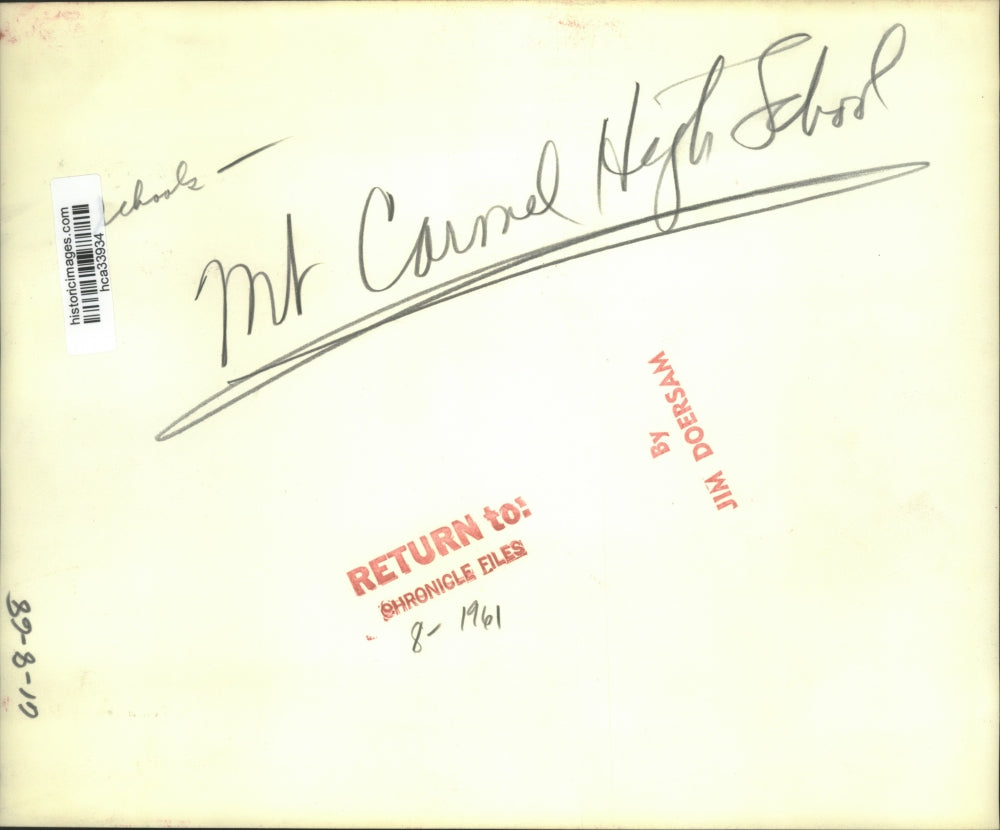 Mt Carmel High School
chools -
historicimages.com
hca33934
By
JIM DOERSAM
RETURN to:
CHRONICLE FILES
8- 1961